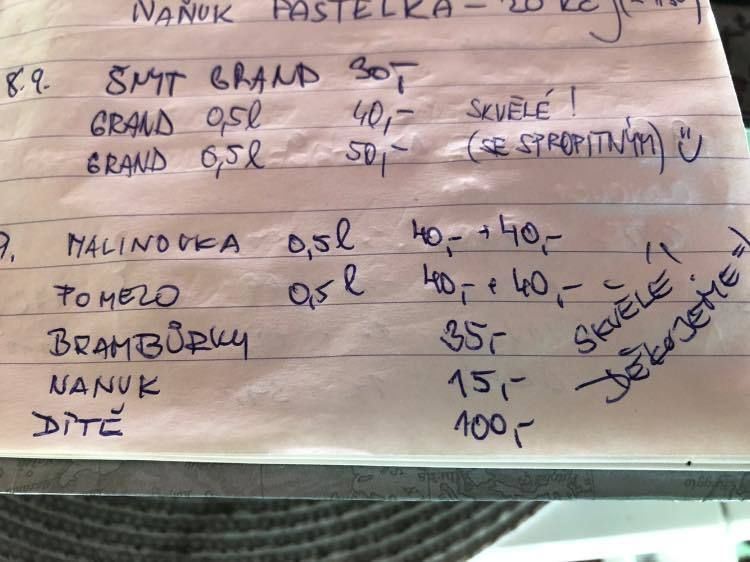 NAŇUK PASTELKA - 20 Kč
8.9. ŠNYT GRAND 30,-
GRAND 0,5l 40,- SKVĚLÉ !
GRAND 0,5l 50,- (SE SPROPITNÝM)
MALINOVKA 0,5l 40,- + 40,-
POMELO 0,5l 40,- + 40,-
BRAMBŮRKY 35,- SKVĚLÉ
NANUK 15,- DĚKUJEME =)
DÍTĚ 100,-